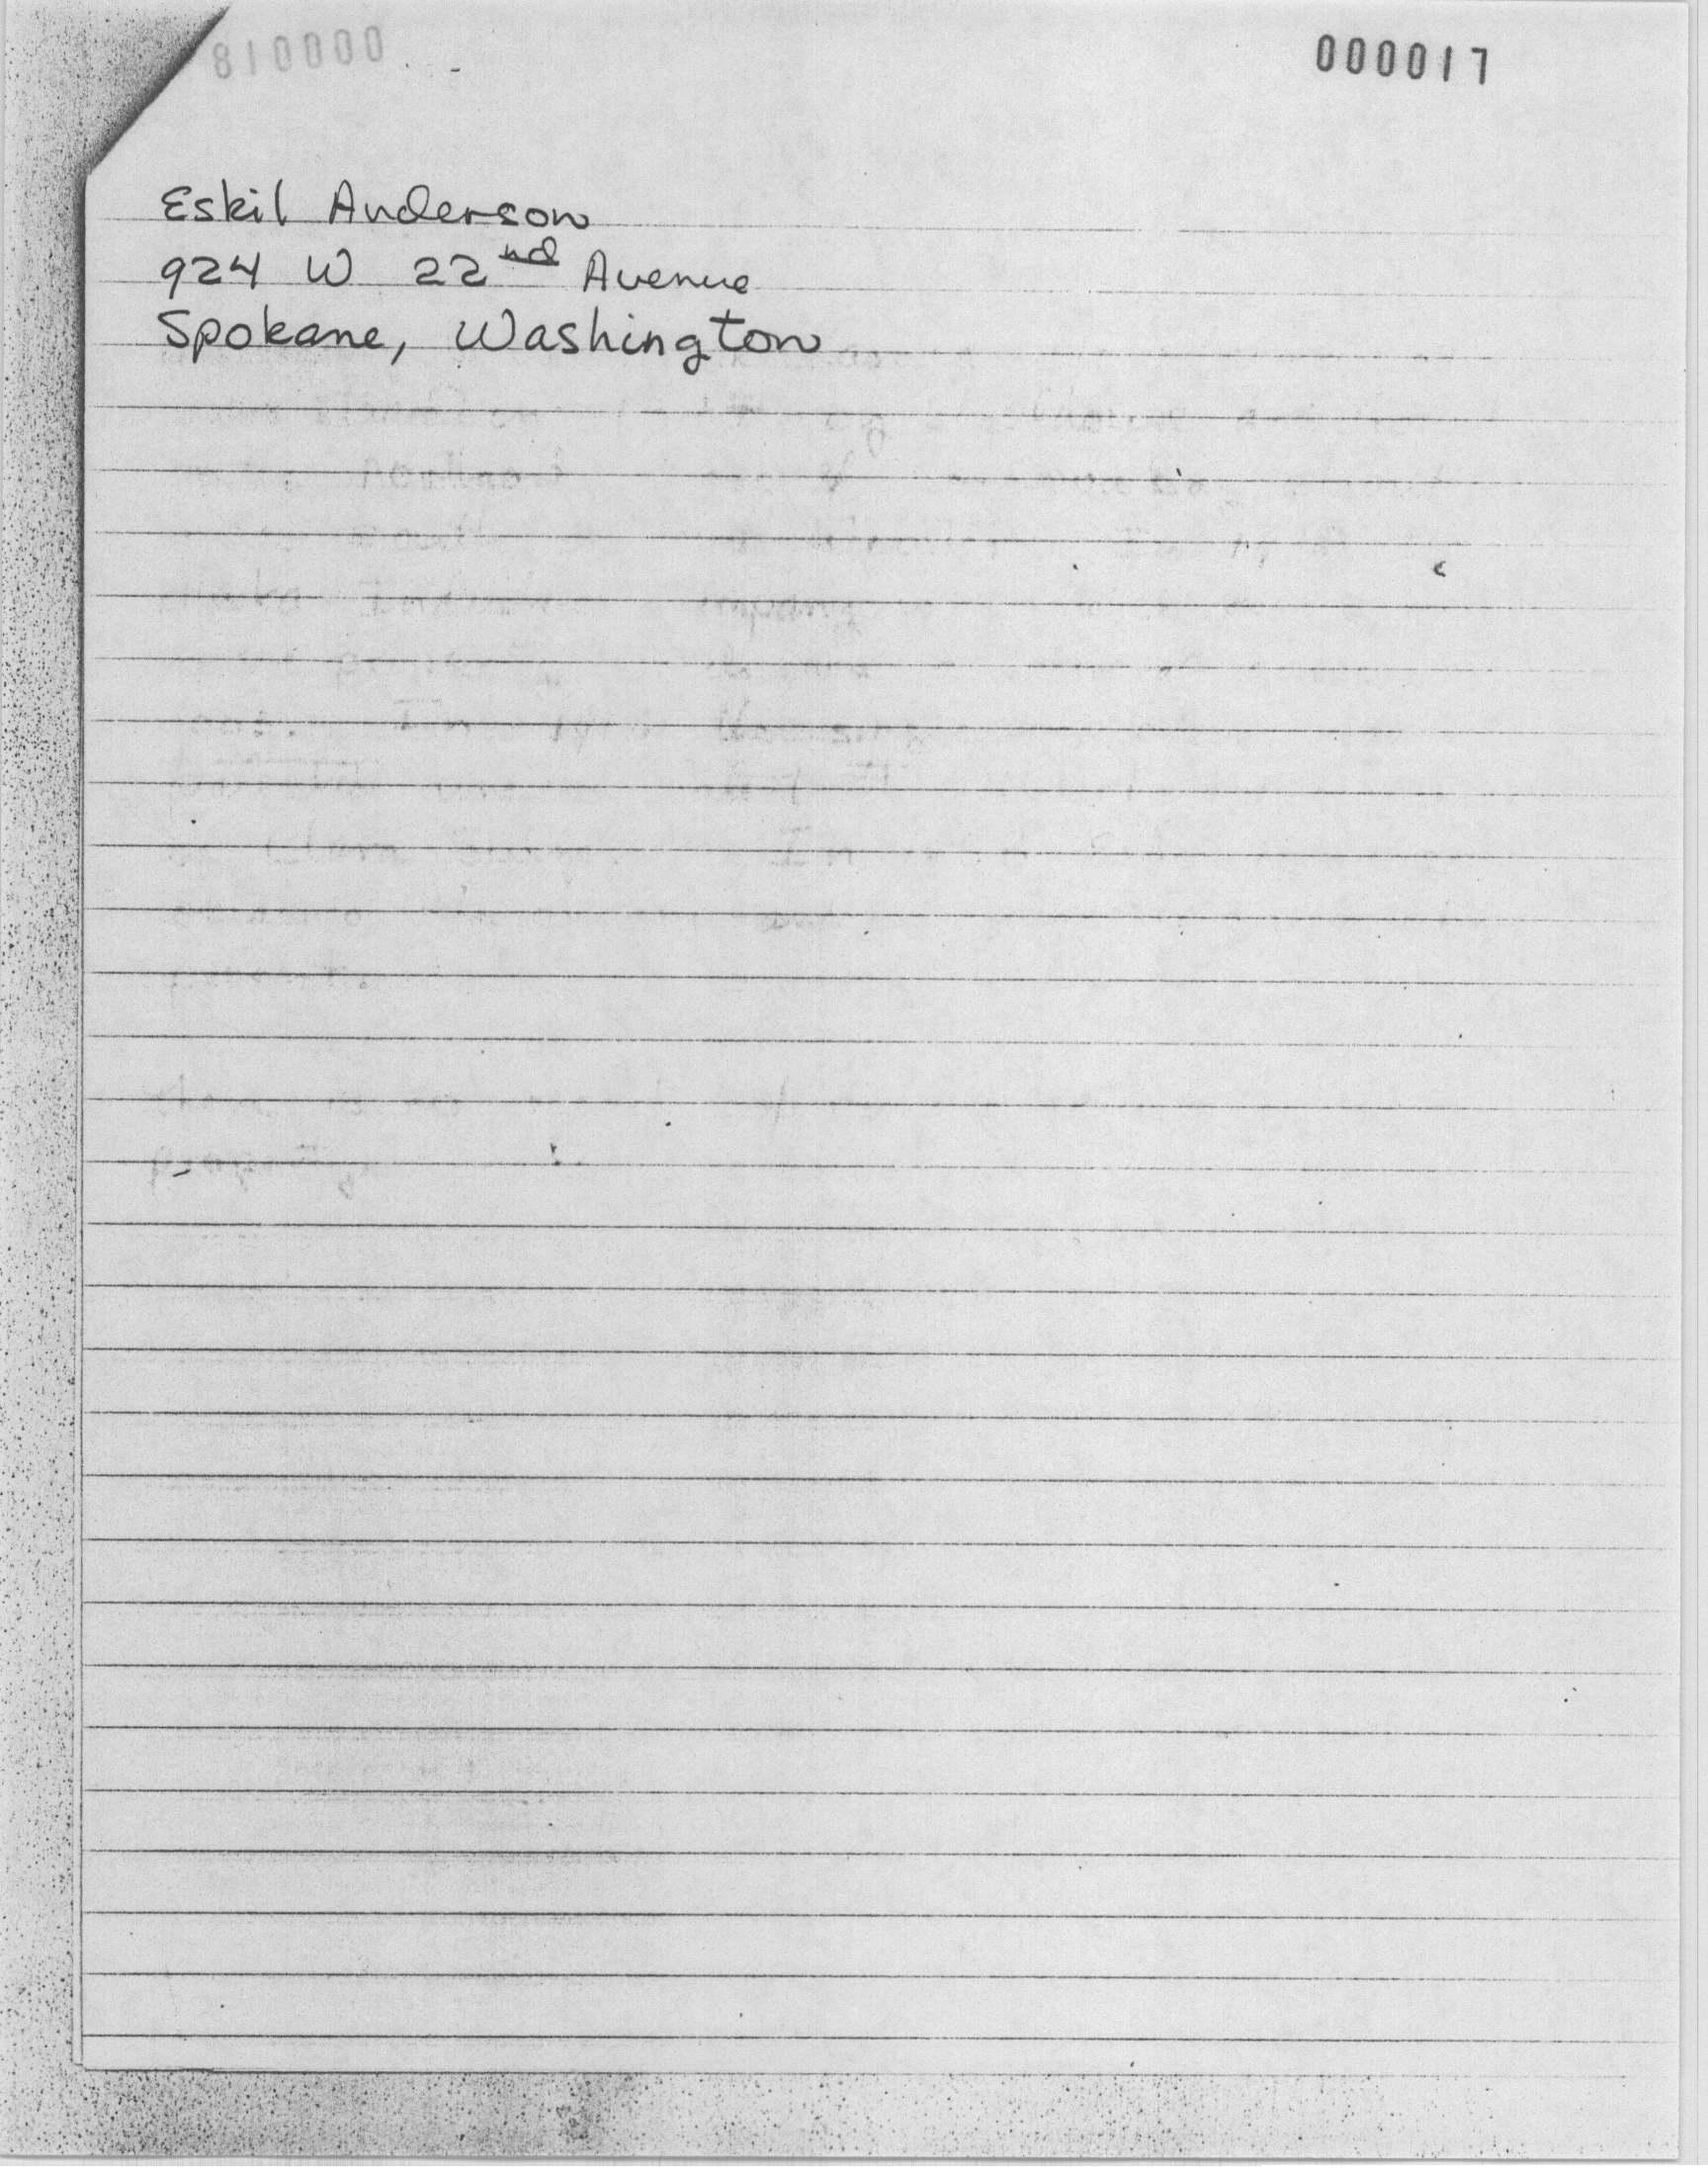 810000
000017
Eskil Anderson
924 W 22nd Avenue
Spokane, Washington